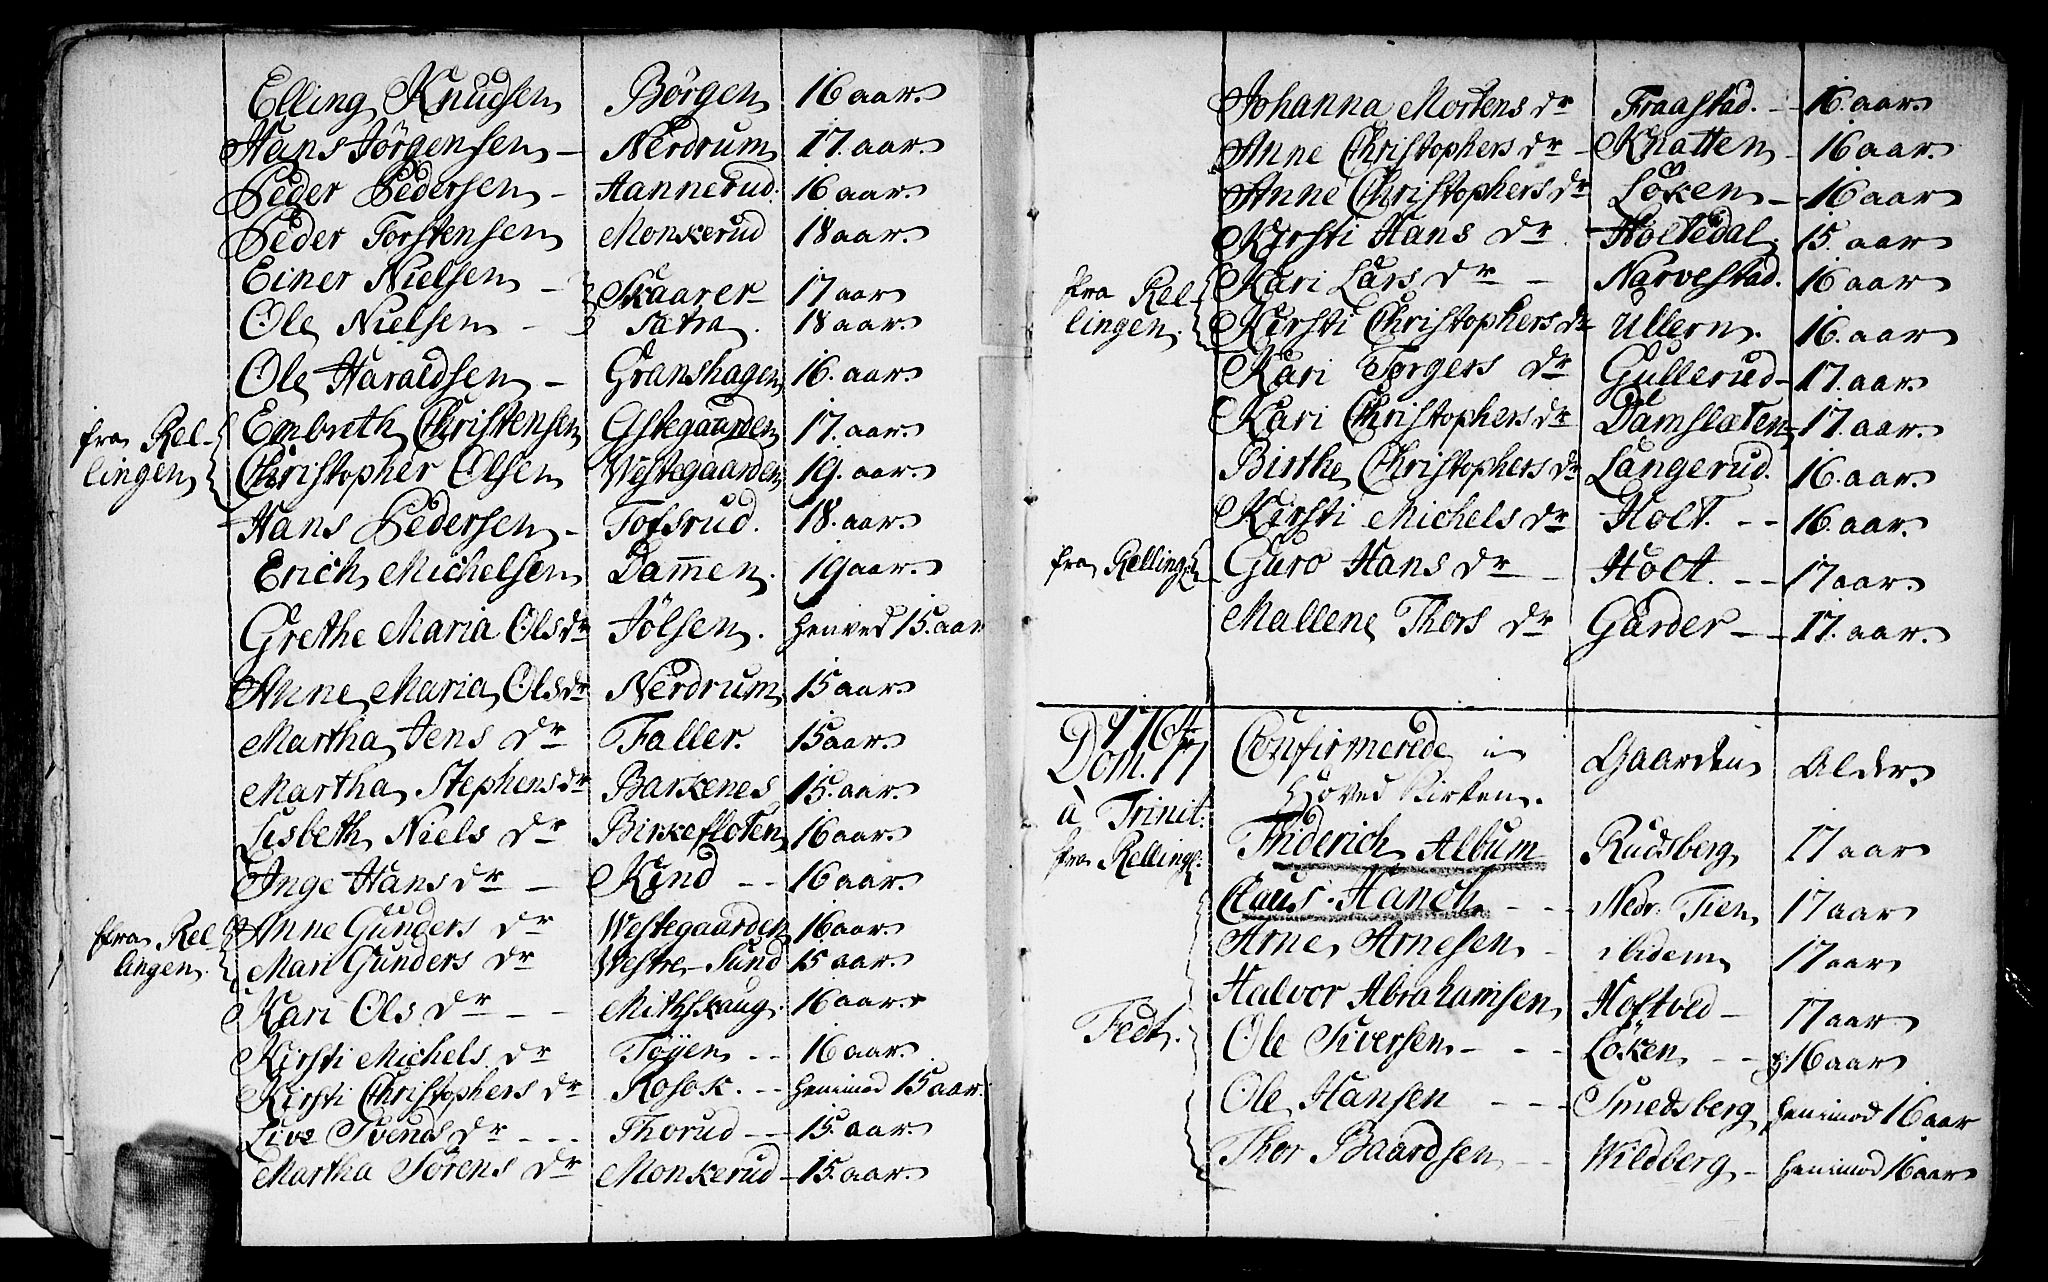 Elling Knudsen Börgen 16 aar.
Hans Jörgensen - Nerdrum 17. aar.
Peder Pedersen - Hannerud. 16 aar.
Peder Torstensen Monkerud 18 aar.
Einer Nielsen - Skaarer 17 aar
Ole Nielsen - satra. 18 aar.
Ole Haraldsen - Granshagen 16. aar.
fra Rel- Embreth Christensen Østegaarden 17. aar.
lingen Christopher Olsen Westegaarden 19. aar.
Hans Pedersen - Tofsrud. 18. aar.
Erich Michelsen Dam̅en. 19 aar.
Grethe Maria Olsdr Jölsen. henved 15. aar
Anne Maria Olsdr Nerdrum 15 aar.
Martha Jens dr Faller. 15 aar.
Martha Stephensdr Barkenes 15. aar.
Lisbeth Niels dr Birkefloten 16 aar.
Inge Hans dr - Kind - - 16 aar.
fra Rel- Anne Gunders dr Westegaarden 16 aar.
lingen. Mari Gunders dr Westre-Sund 15 aar.
Kari Ols dr - - Mithskaug. 16 aar.
Kirsti Michels dr Töyen - - 16 aar.
Kirsti Christophers dr Rosok. - - henimod 15 aar.
Live Svends dr - - - Thorud - - 15. aar.
Martha Sörens dr Monkerud - 15. aar.
Johanna Mortens dr Fraastad. - 16. aar.
Anne Christophers dr - Knatten - 16 aar.
Anne Christophers dr Löken - - 16 aar
Kirsti Hans dr Holtedal. 15. aar
fra Rel- Kari Lars dr - Narvestad. 16 aar
lingen. Kirsti Christophers dr Ullern. 16. aar
Kari Torgers dr Gullerud - 17. aar.
Kari Christophers dr Damsleten - 17. aar.
Birthe Christophers dr Langerud. 16. aar.
Kirsti Michels dr Holt. - - 16. aar.
fra Relling: Guro Hans dr - Holt. - - 17 aar.
Mallene Thors dr Garder - - 17. aar.
Dom. 17 Confirmerede in Gaarden Alder
à Trinit: Hoved Kirken.
fra Relling: Friderich Album Rudsberg 17 aar
Claus Hanch - - - Nedr: Tien 17 aar
Arne Arnesen - ibidem 17 aar
Halvor Abrahamsen Hoftved - 17 aar
Fedt. Ole Siversen - - - Löken - - 16 aar
Ole Hansen - - - Smedsberg henimod 16 aar
Thor Baardsen - - Wildberg - henimod 16 aar